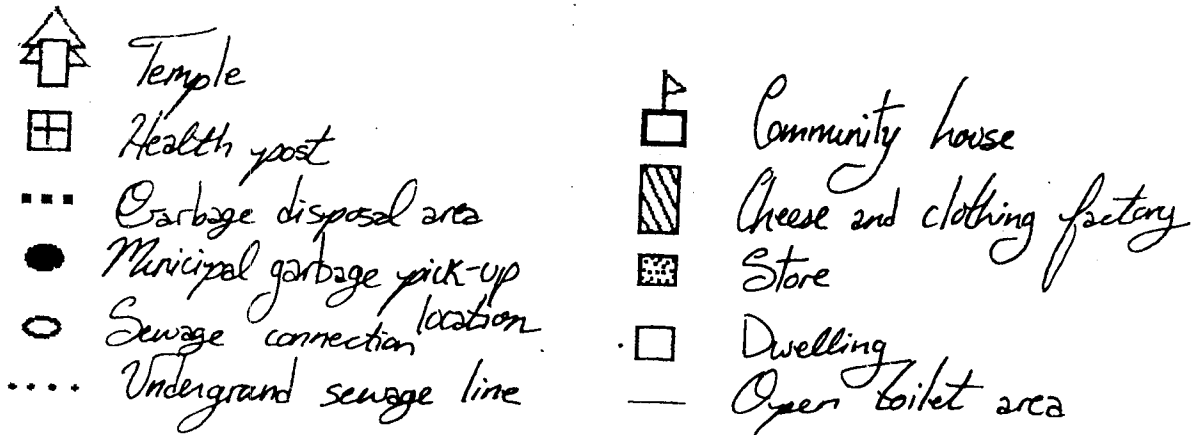 Temple
Health post
Garbage disposal area
Municipal garbage pick-up
location
Sewage connection
Undergrand sewage line
Community house
Cheese and clothing factory
Store
Dwelling
Open toilet area